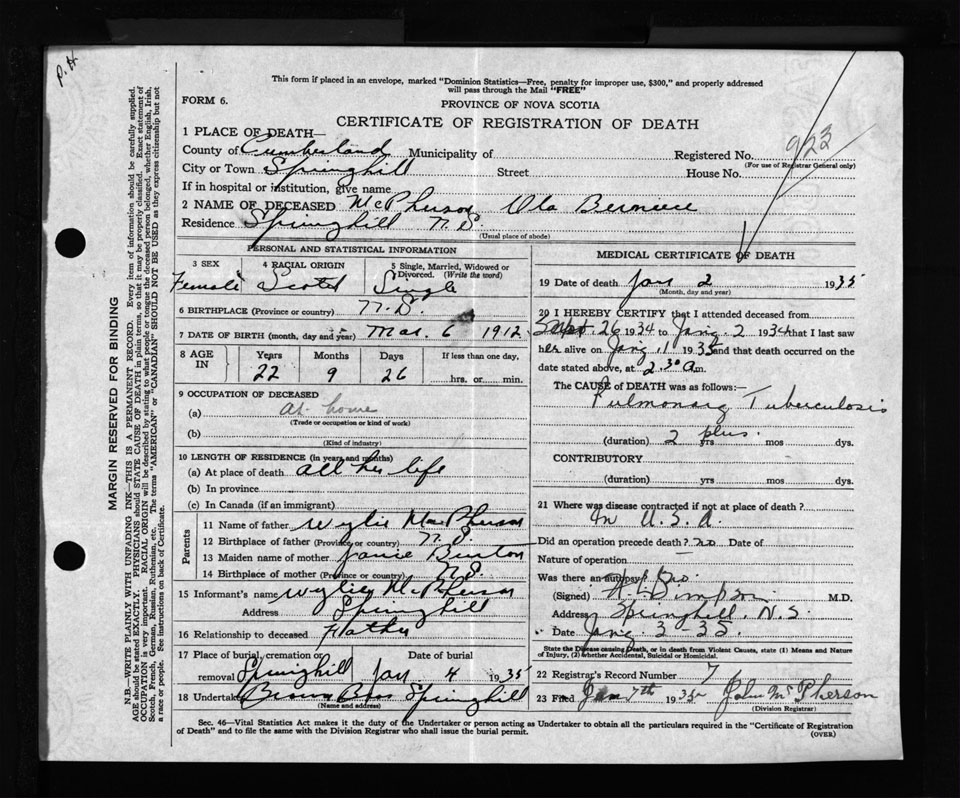 P.H.
This form if placed in an envelope, marked "Dominion Statistics—Free, penalty for improper use, $300," and properly addressed
will pass through the Mail "FREE"
FORM 6.
PROVINCE OF NOVA SCOTIA
CERTIFICATE OF REGISTRATION OF DEATH
923
1 PLACE OF DEATH—
County of Cumberland Municipality of Registered No.
(For use of Registrar General only)
City or Town Springhill Street House No.
If in hospital or institution, give name
2 NAME OF DECEASED McPherson Ola Berniece
Residence Springhill N.S.
(Usual place of abode)
PERSONAL AND STATISTICAL INFORMATION
3 SEX 4 RACIAL ORIGIN 5 Single, Married, Widowed or Divorced. (Write the word)
Female Scotch Single
6 BIRTHPLACE (Province or country) N.S.
7 DATE OF BIRTH (month, day and year) Mar. 6 1912
8 AGE IN Years Months Days If less than one day,
22 9 26 hrs. or min.
9 OCCUPATION OF DECEASED
(a) at home
(Trade or occupation or kind of work)
(b)
(Kind of industry)
10 LENGTH OF RESIDENCE (in years and months)
(a) At place of death all her life
(b) In province
(c) In Canada (if an immigrant)
Parents
11 Name of father Wylie MacPherson
12 Birthplace of father (Province or country) N.S.
13 Maiden name of mother Janie Burton
14 Birthplace of mother (Province or country) N.S.
15 Informant's name Wylie McPherson
Address Springhill
16 Relationship to deceased Father
17 Place of burial, cremation or removal Date of burial
Springhill Jan. 4 1935
18 Undertaker Brown Bros Springhill
(Name and address)
MEDICAL CERTIFICATE OF DEATH
19 Date of death Jan 2 1935
(Month, day and year)
20 I HEREBY CERTIFY that I attended deceased from
Sept. 26 1934 to Jan. 2 1934 that I last saw
her alive on Jan. 1 1935 and that death occurred on the
date stated above, at 2.30 a.m.
The CAUSE of DEATH was as follows:—
Pulmonary Tuberculosis
(duration) 2 plus yrs mos dys.
CONTRIBUTORY
(duration) yrs mos dys.
21 Where was disease contracted if not at place of death?
In U.S.A.
Did an operation precede death? no Date of
Nature of operation —
Was there an autopsy? No.
(Signed) Simpson M.D.
Address Springhill, N.S.
Date Jan. 3-35.
State the Disease causing Death, or in death from Violent Causes, state (1) Means and Nature
of Injury, (2) whether Accidental, Suicidal or Homicidal.
22 Registrar's Record Number 7
23 Filed Jan 7th 1935 John McPherson
(Division Registrar)
Sec. 46—Vital Statistics Act makes it the duty of the Undertaker or person acting as Undertaker to obtain all the particulars required in the "Certificate of Registration
of Death" and to file the same with the Division Registrar who shall issue the burial permit.
(OVER)
MARGIN RESERVED FOR BINDING
N.B.—WRITE PLAINLY WITH UNFADING INK—THIS IS A PERMANENT RECORD. Every item of information should be carefully supplied.
AGE should be stated EXACTLY. PHYSICIANS should STATE CAUSE OF DEATH in plain terms, so that it may be properly classified. Exact statement of
OCCUPATION is very important. RACIAL ORIGIN will be described by stating to what people or tongue the deceased person belonged, whether English, Irish,
Scotch, French, German, Russian, Ruthenian, etc. The terms "AMERICAN" or "CANADIAN" SHOULD NOT BE USED as they express citizenship but not
a race or people. See instructions on back of Certificate.